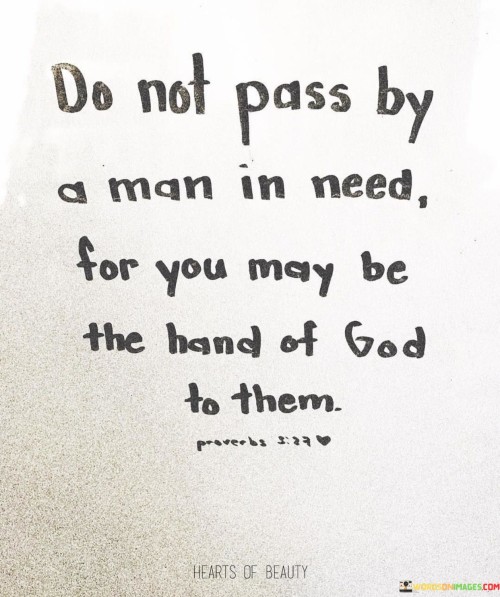 Do not pass by
a man in need,
for you may be
the hand of God
to them.
proverbs 3:27 ♥
HEARTS OF BEAUTY
WORDSONIMAGES.COM